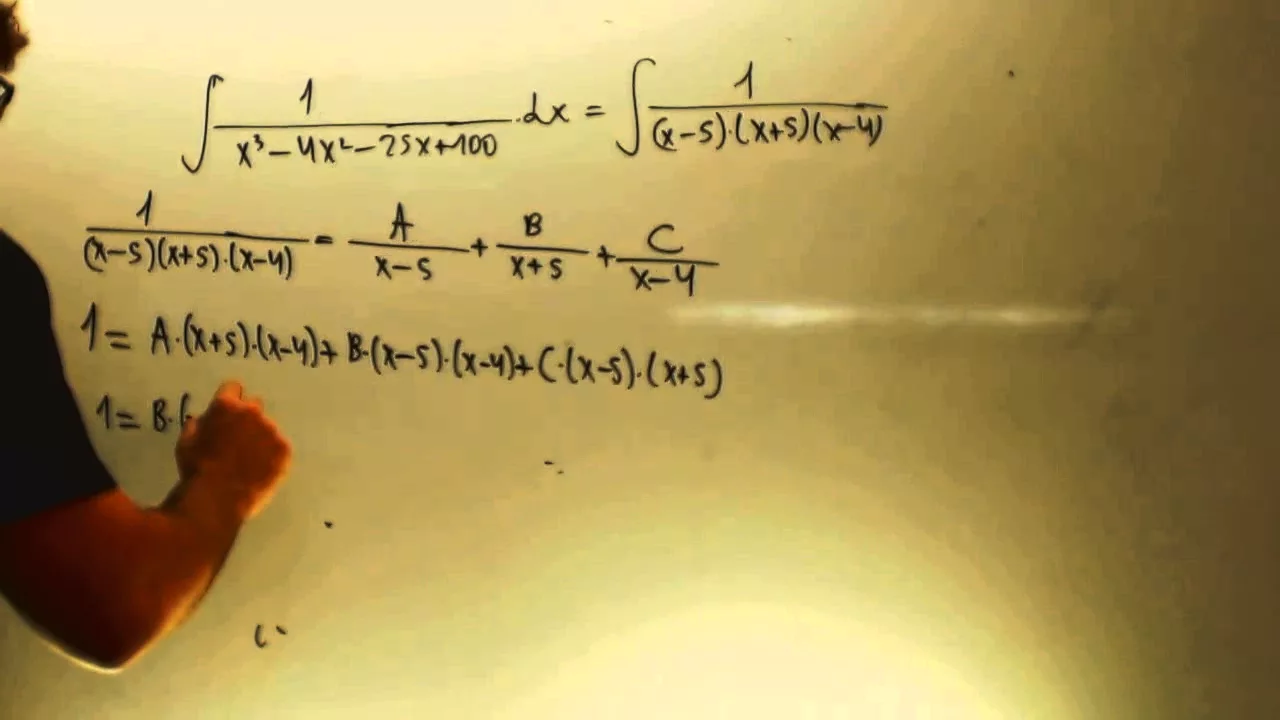 ∫ 1/(x³-4x²-25x+100) · dx = ∫ 1/((x-5)·(x+5)(x-4))
1/((x-5)(x+5)·(x-4)) = A/(x-5) + B/(x+5) + C/(x-4)
1 = A·(x+5)·(x-4) + B·(x-5)·(x-4) + C·(x-5)·(x+5)
1 = B·(